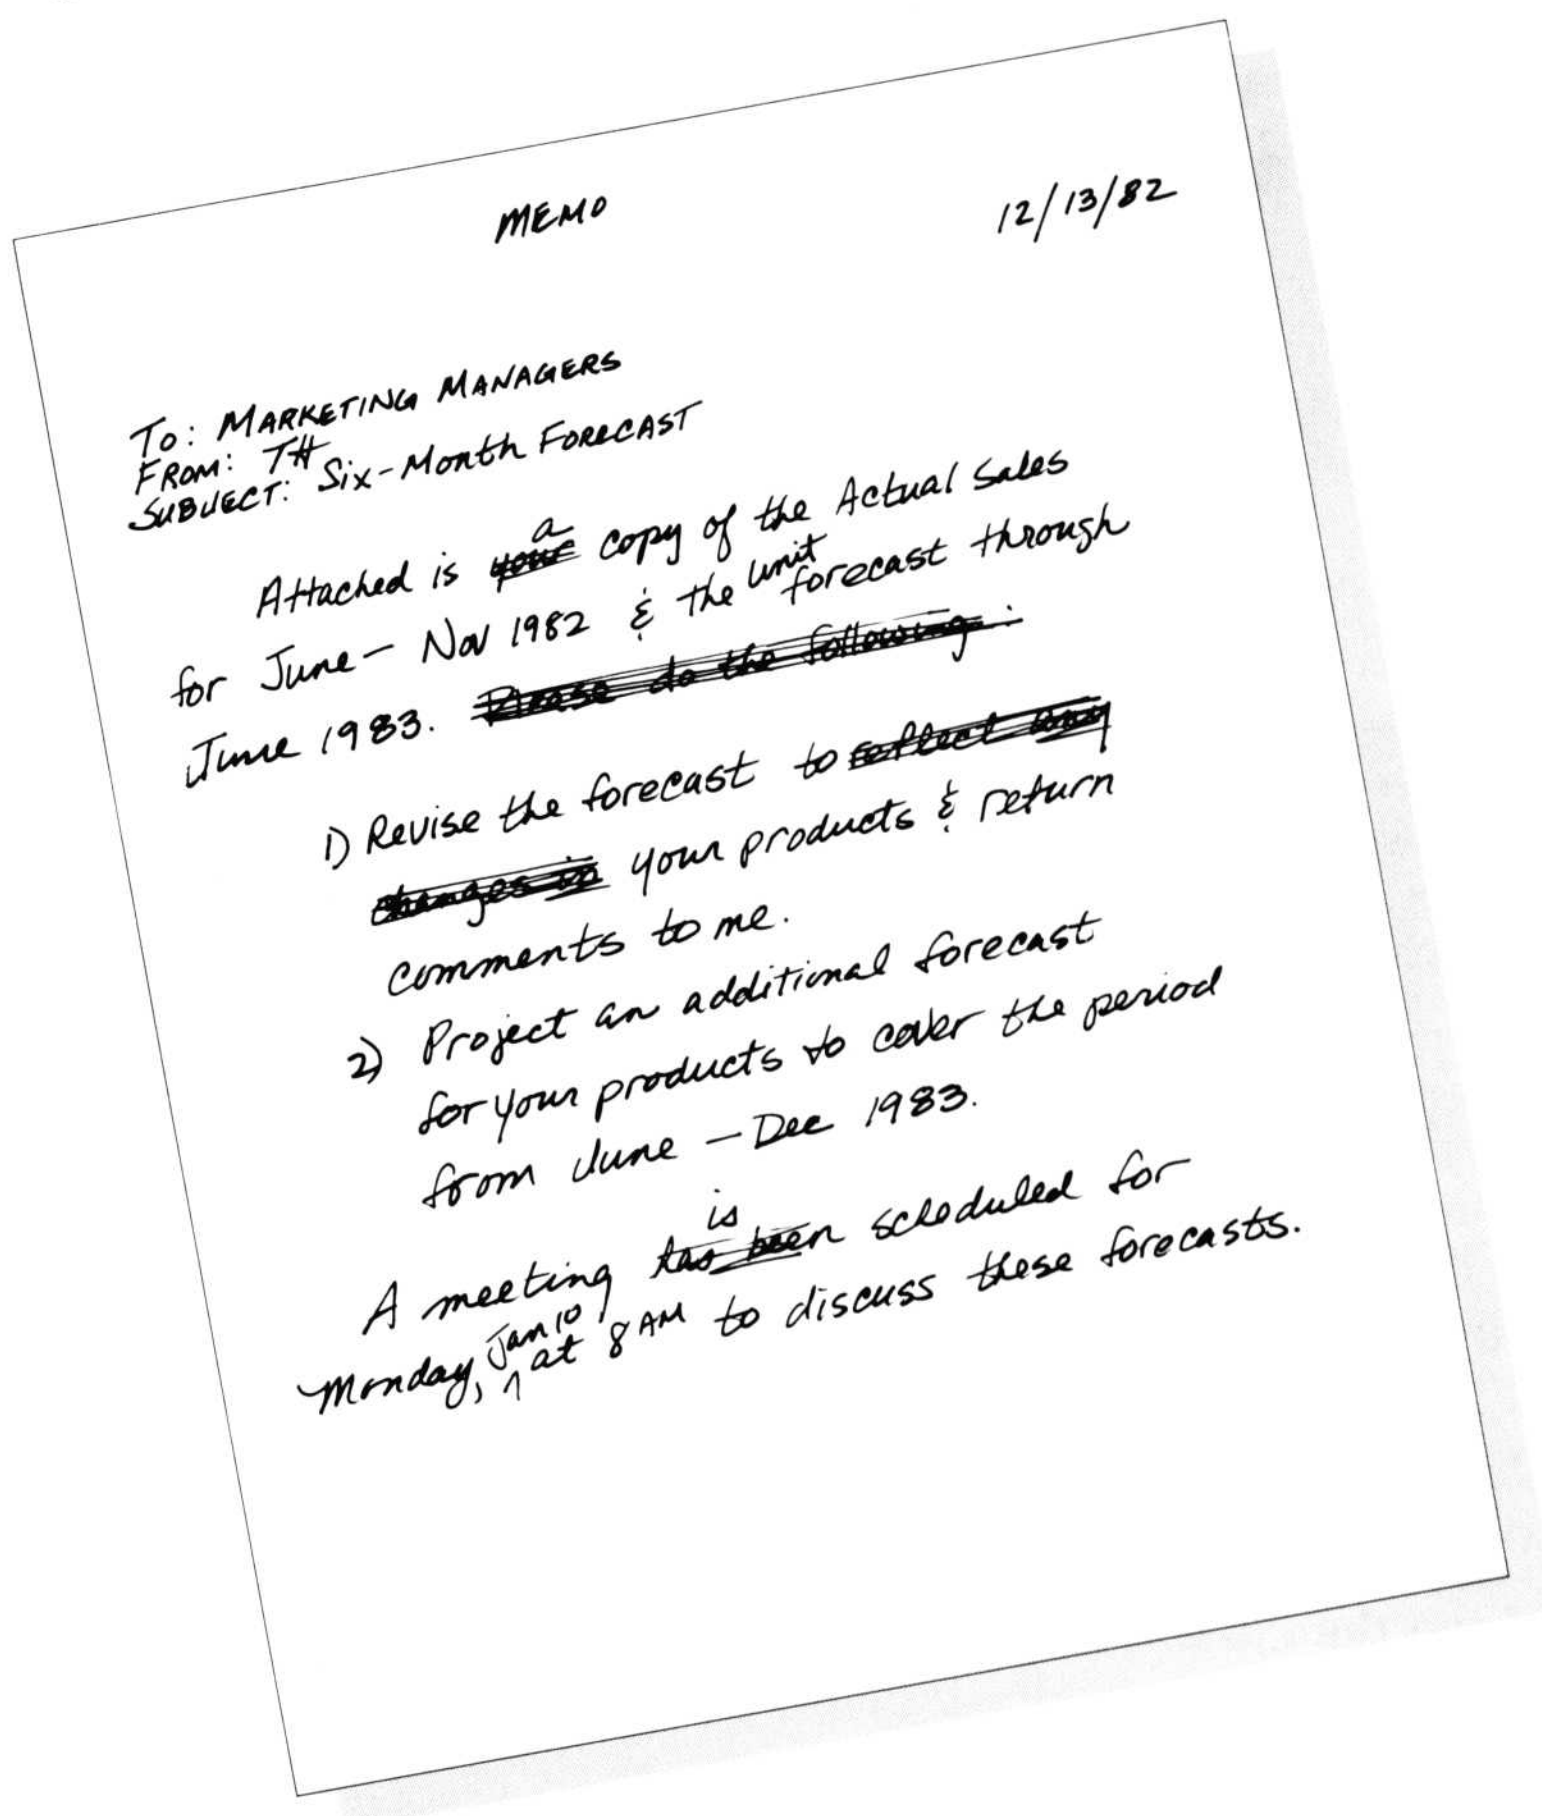 MEMO 12/13/82
TO: MARKETING MANAGERS
FROM: TH
SUBJECT: Six-Month FORECAST
a
Attached is your copy of the Actual Sales
unit
for June - Nov 1982 & the forecast through
June 1983. Please do the following:
1) Revise the forecast to reflect any
changes in your products & return
comments to me.
2) Project an additional forecast
for your products to cover the period
from June - Dec 1983.
is
A meeting has been scheduled for
Jan 10
Monday, ^ at 8 AM to discuss these forecasts.